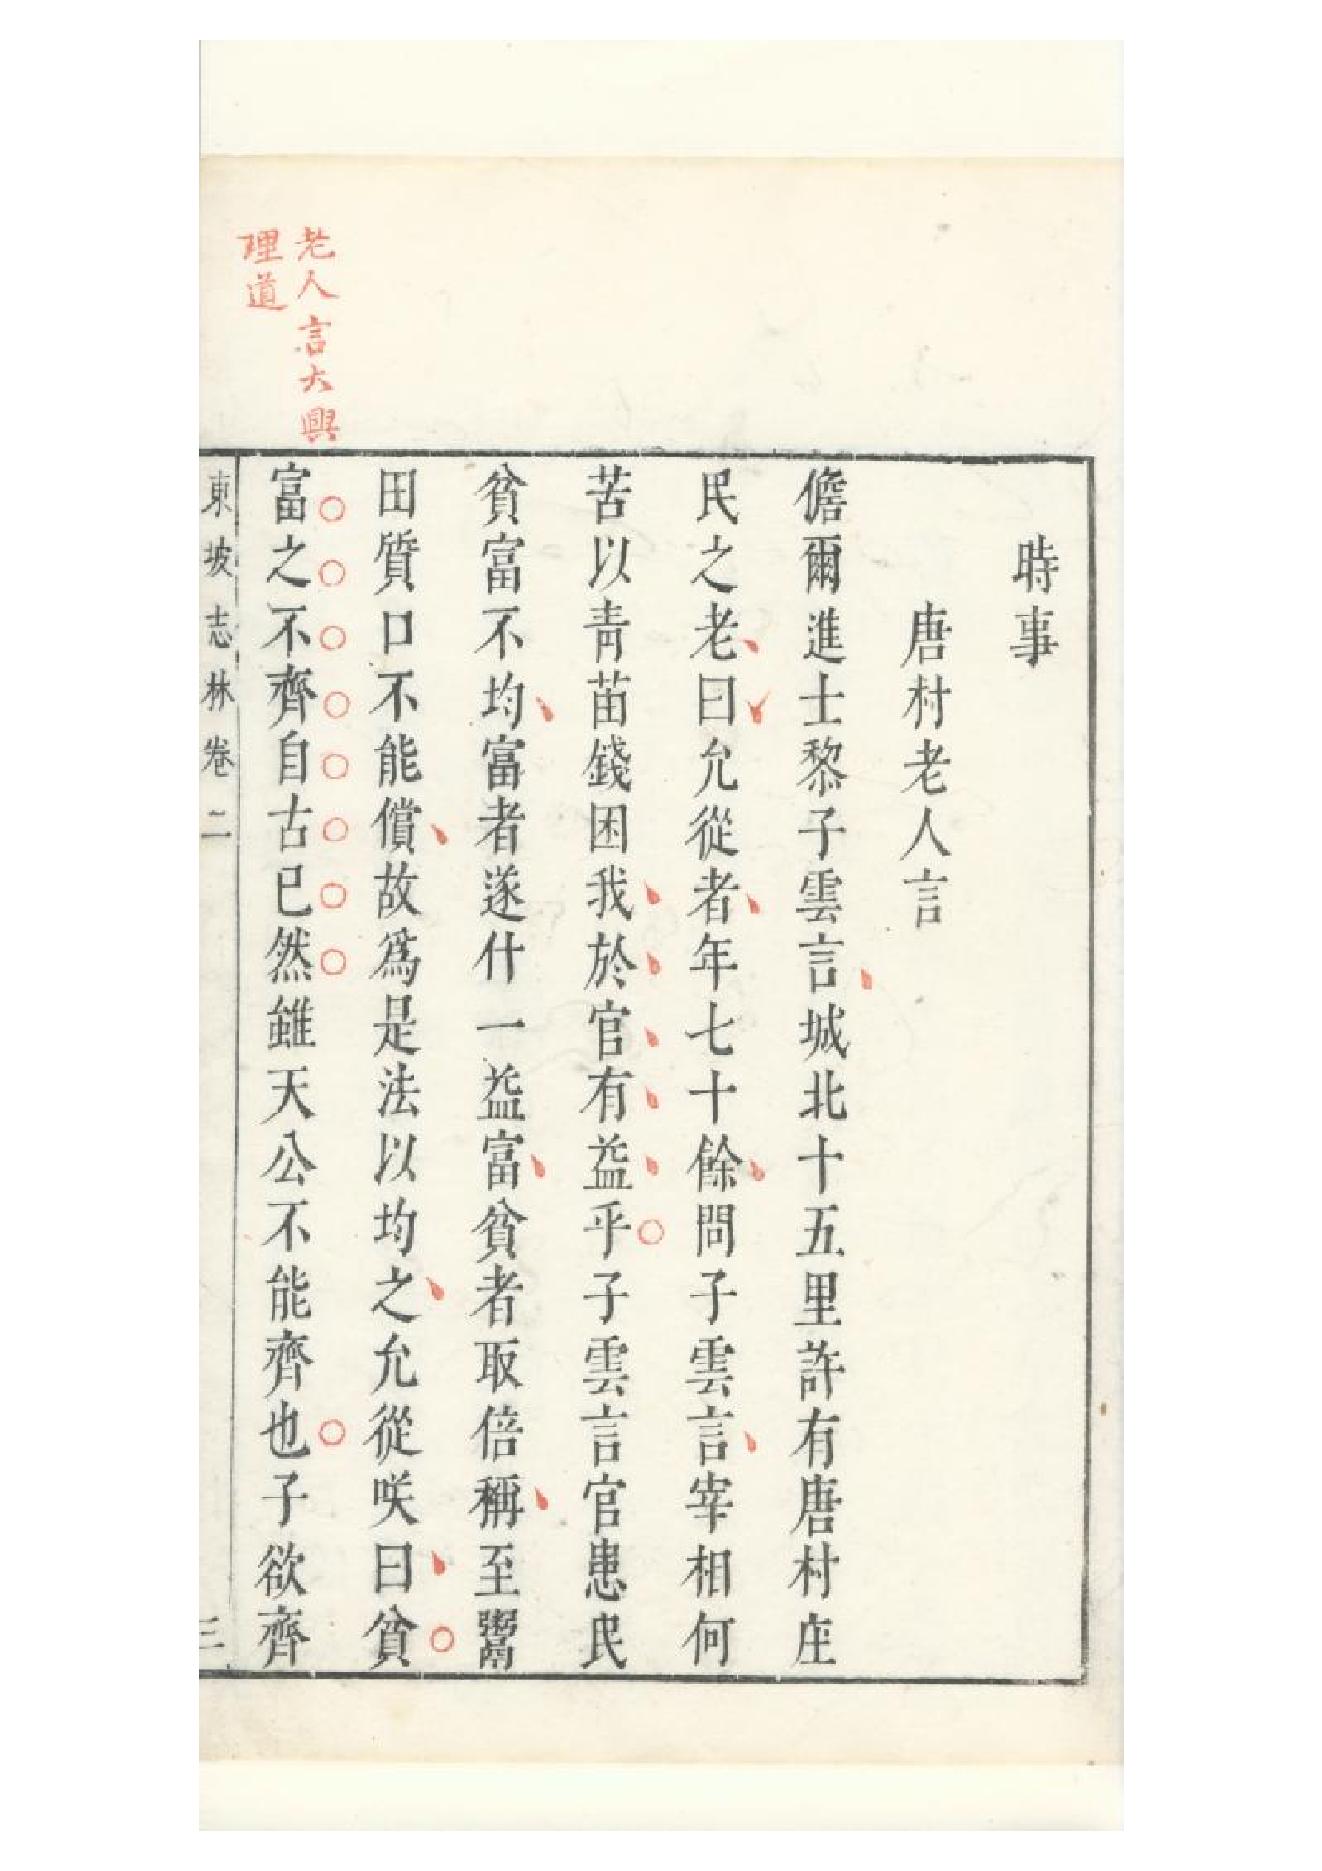 時事
唐村老人言
儋爾進士黎子雲言城北十五里許有唐村庄
民之老曰允從者年七十餘問子雲言宰相何
苦以靑苗錢困我於官有益乎子雲言官患民
貧富不均富者遂什一益富貧者取倍稱至鬻
田質口不能償故爲是法以均之允從咲曰貧
富之不齊自古已然雖天公不能齊也子欲齊
東坡志林卷二
三
老人言大興
理道